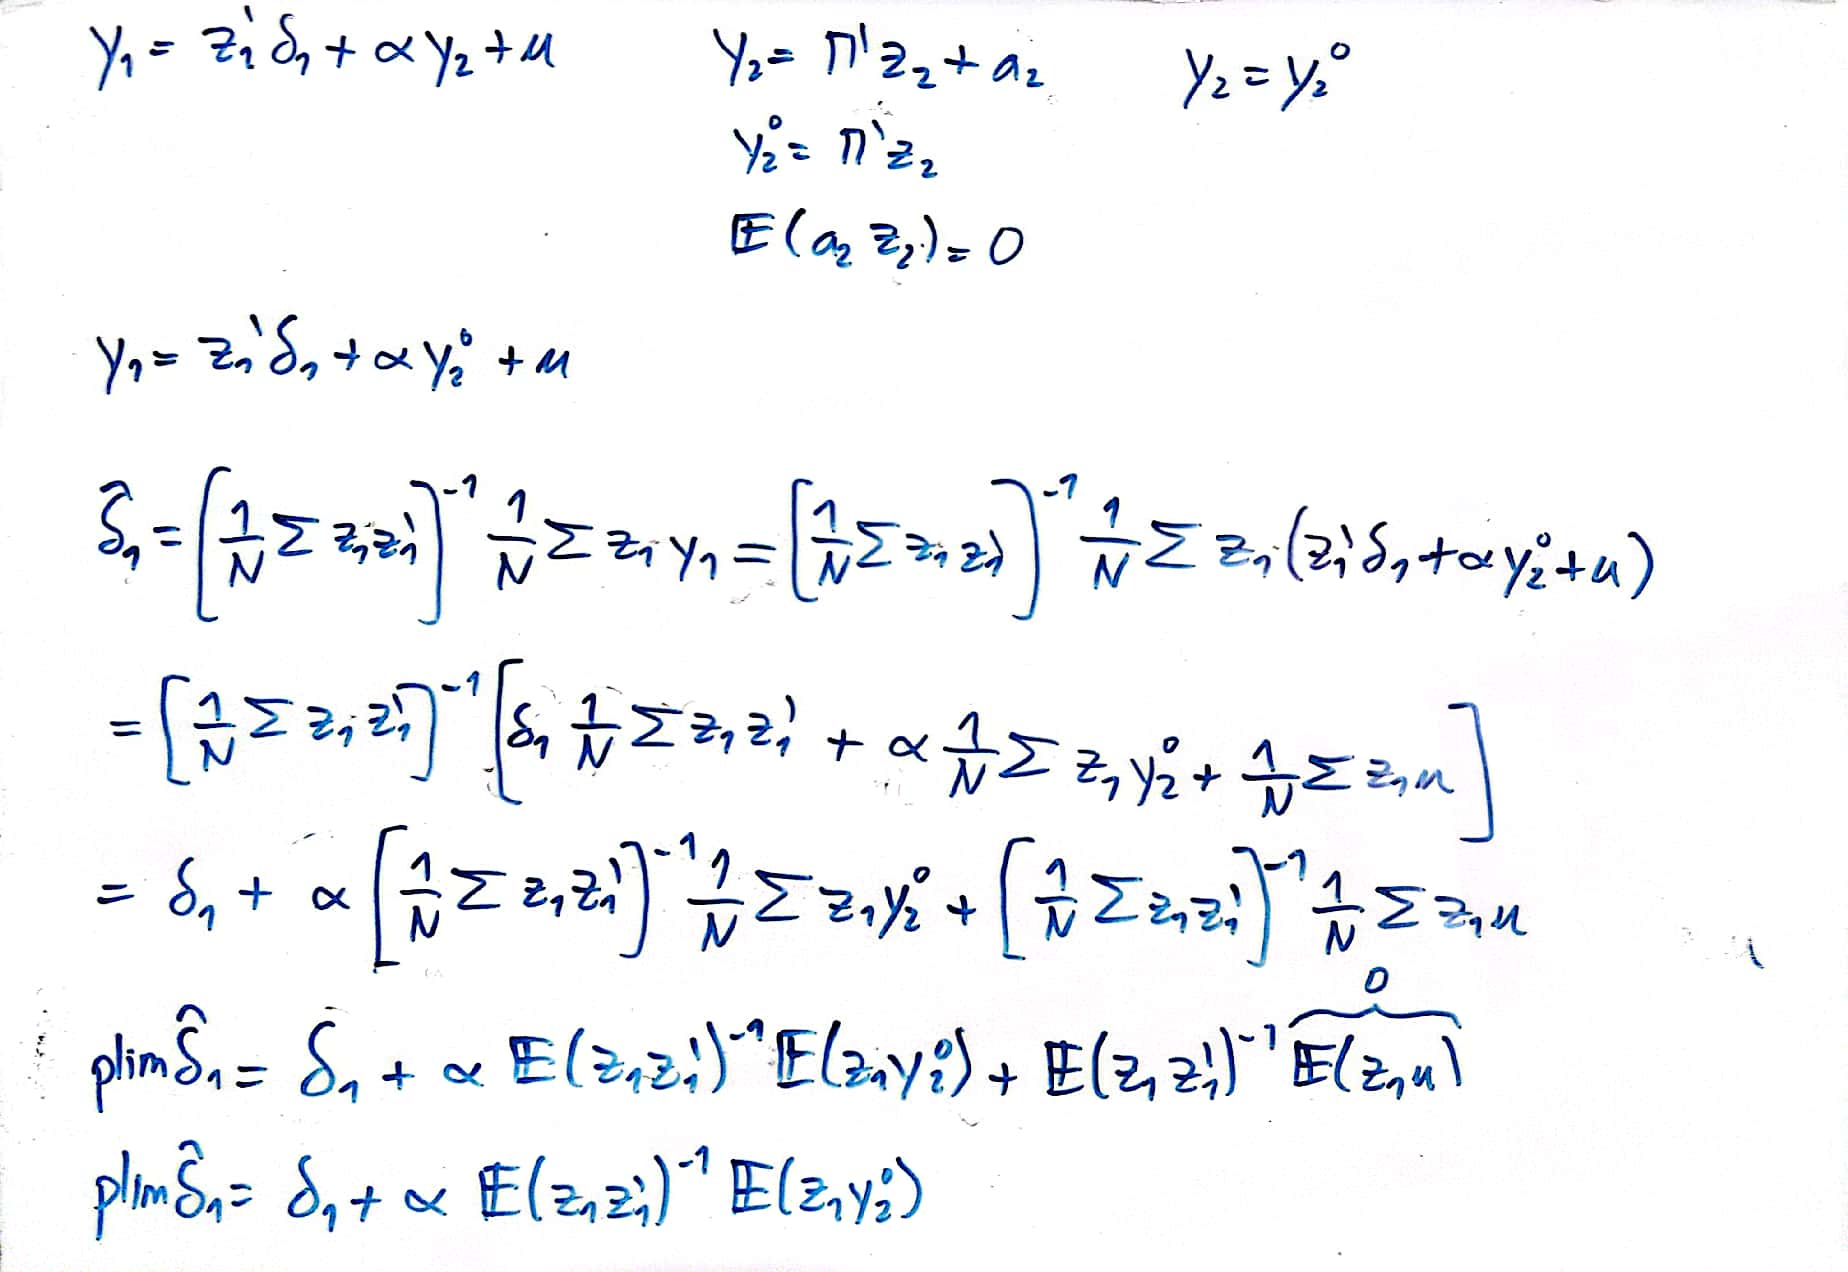 y₁ = z₁'δ₁ + αy₂ + u    y₂ = Π'z₂ + a₂    y₂ = y₂⁰
y₂⁰ = Π'z₂
𝔼(a₂ z₂) = 0
y₁ = z₁'δ₁ + αy₂⁰ + u
δ̂₁ = [1/N Σ z₁z₁']⁻¹ 1/N Σ z₁y₁ = [1/N Σ z₁z₁']⁻¹ 1/N Σ z₁(z₁'δ₁ + αy₂⁰ + u)
= [1/N Σ z₁z₁']⁻¹ [δ₁ 1/N Σ z₁z₁' + α 1/N Σ z₁y₂⁰ + 1/N Σ z₁u]
= δ₁ + α [1/N Σ z₁z₁']⁻¹ 1/N Σ z₁y₂⁰ + [1/N Σ z₁z₁']⁻¹ 1/N Σ z₁u
0
plim δ̂₁ = δ₁ + α 𝔼(z₁z₁')⁻¹ 𝔼(z₁y₂⁰) + 𝔼(z₁z₁')⁻¹ 𝔼(z₁u)
plim δ̂₁ = δ₁ + α 𝔼(z₁z₁')⁻¹ 𝔼(z₁y₂⁰)